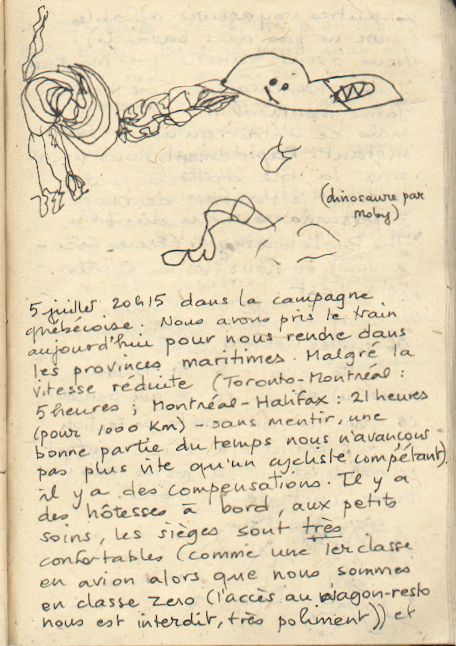 (dinosaure par
Moby)
5 juillet 20h15 dans la campagne
québécoise. Nous avons pris le train
aujourd'hui pour nous rendre dans
les provinces maritimes. Malgré la
vitesse réduite (Toronto-Montréal :
5 heures ; Montréal-Halifax : 21 heures
(pour 1000 km) - sans mentir, une
bonne partie du temps nous n'avançons
pas plus vite qu'un cycliste compétant).
il y a des compensations. Il y a
des hôtesses à bord, aux petits
soins, les sièges sont très
confortables (comme une 1er classe
en avion alors que nous sommes
en classe zero (l'accès au wagon-resto
nous est interdit, très poliment)) et